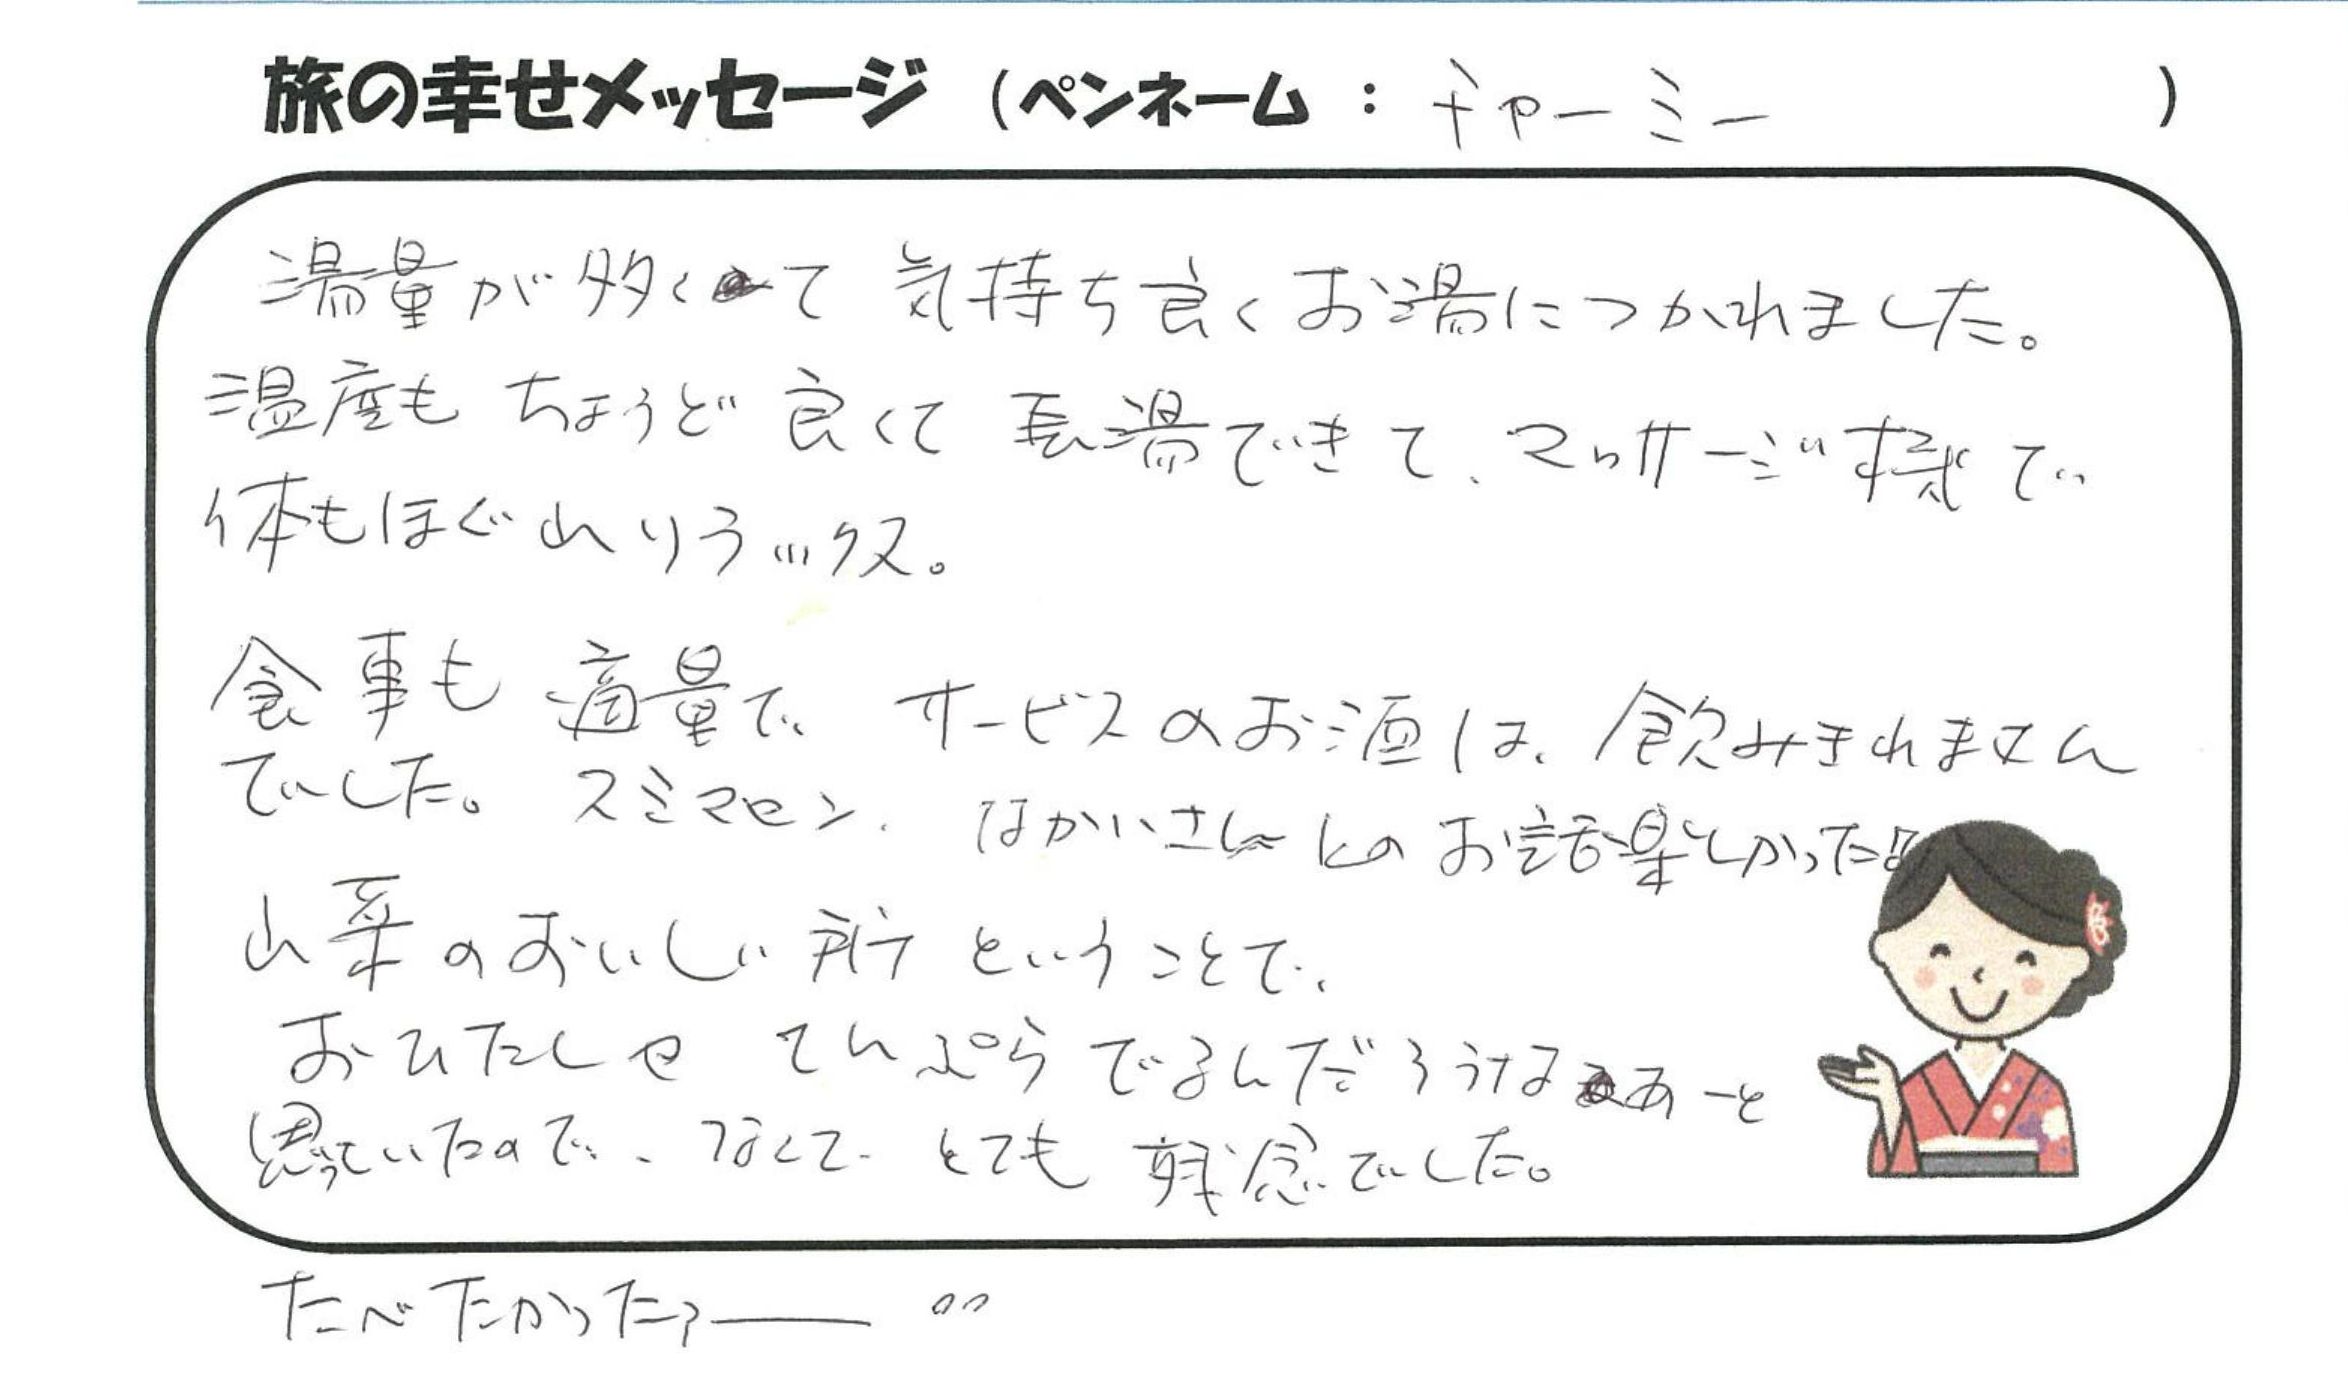 旅の幸せメッセージ (ペンネーム : チャーミー )
湯量が多くて 気持ち良くお湯につかれました。
温度も ちょうど 良くて 長湯できて、マッサージ機で
体もほぐれリラックス。
食事も 適量で、サービスのお酒は、飲みきれません
でした。スミマセン、なかいさんとのお話楽しかった!!
山菜のおいしい所ということで、
おひたしや てんぷらでるんだろうなぁーと
思っていたので、なくて とても 残念でした。
たべたかったァ―― 。。